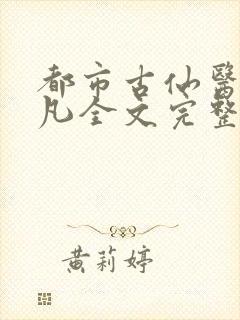 都市古仙醫
凡全文完整
黃莉婷